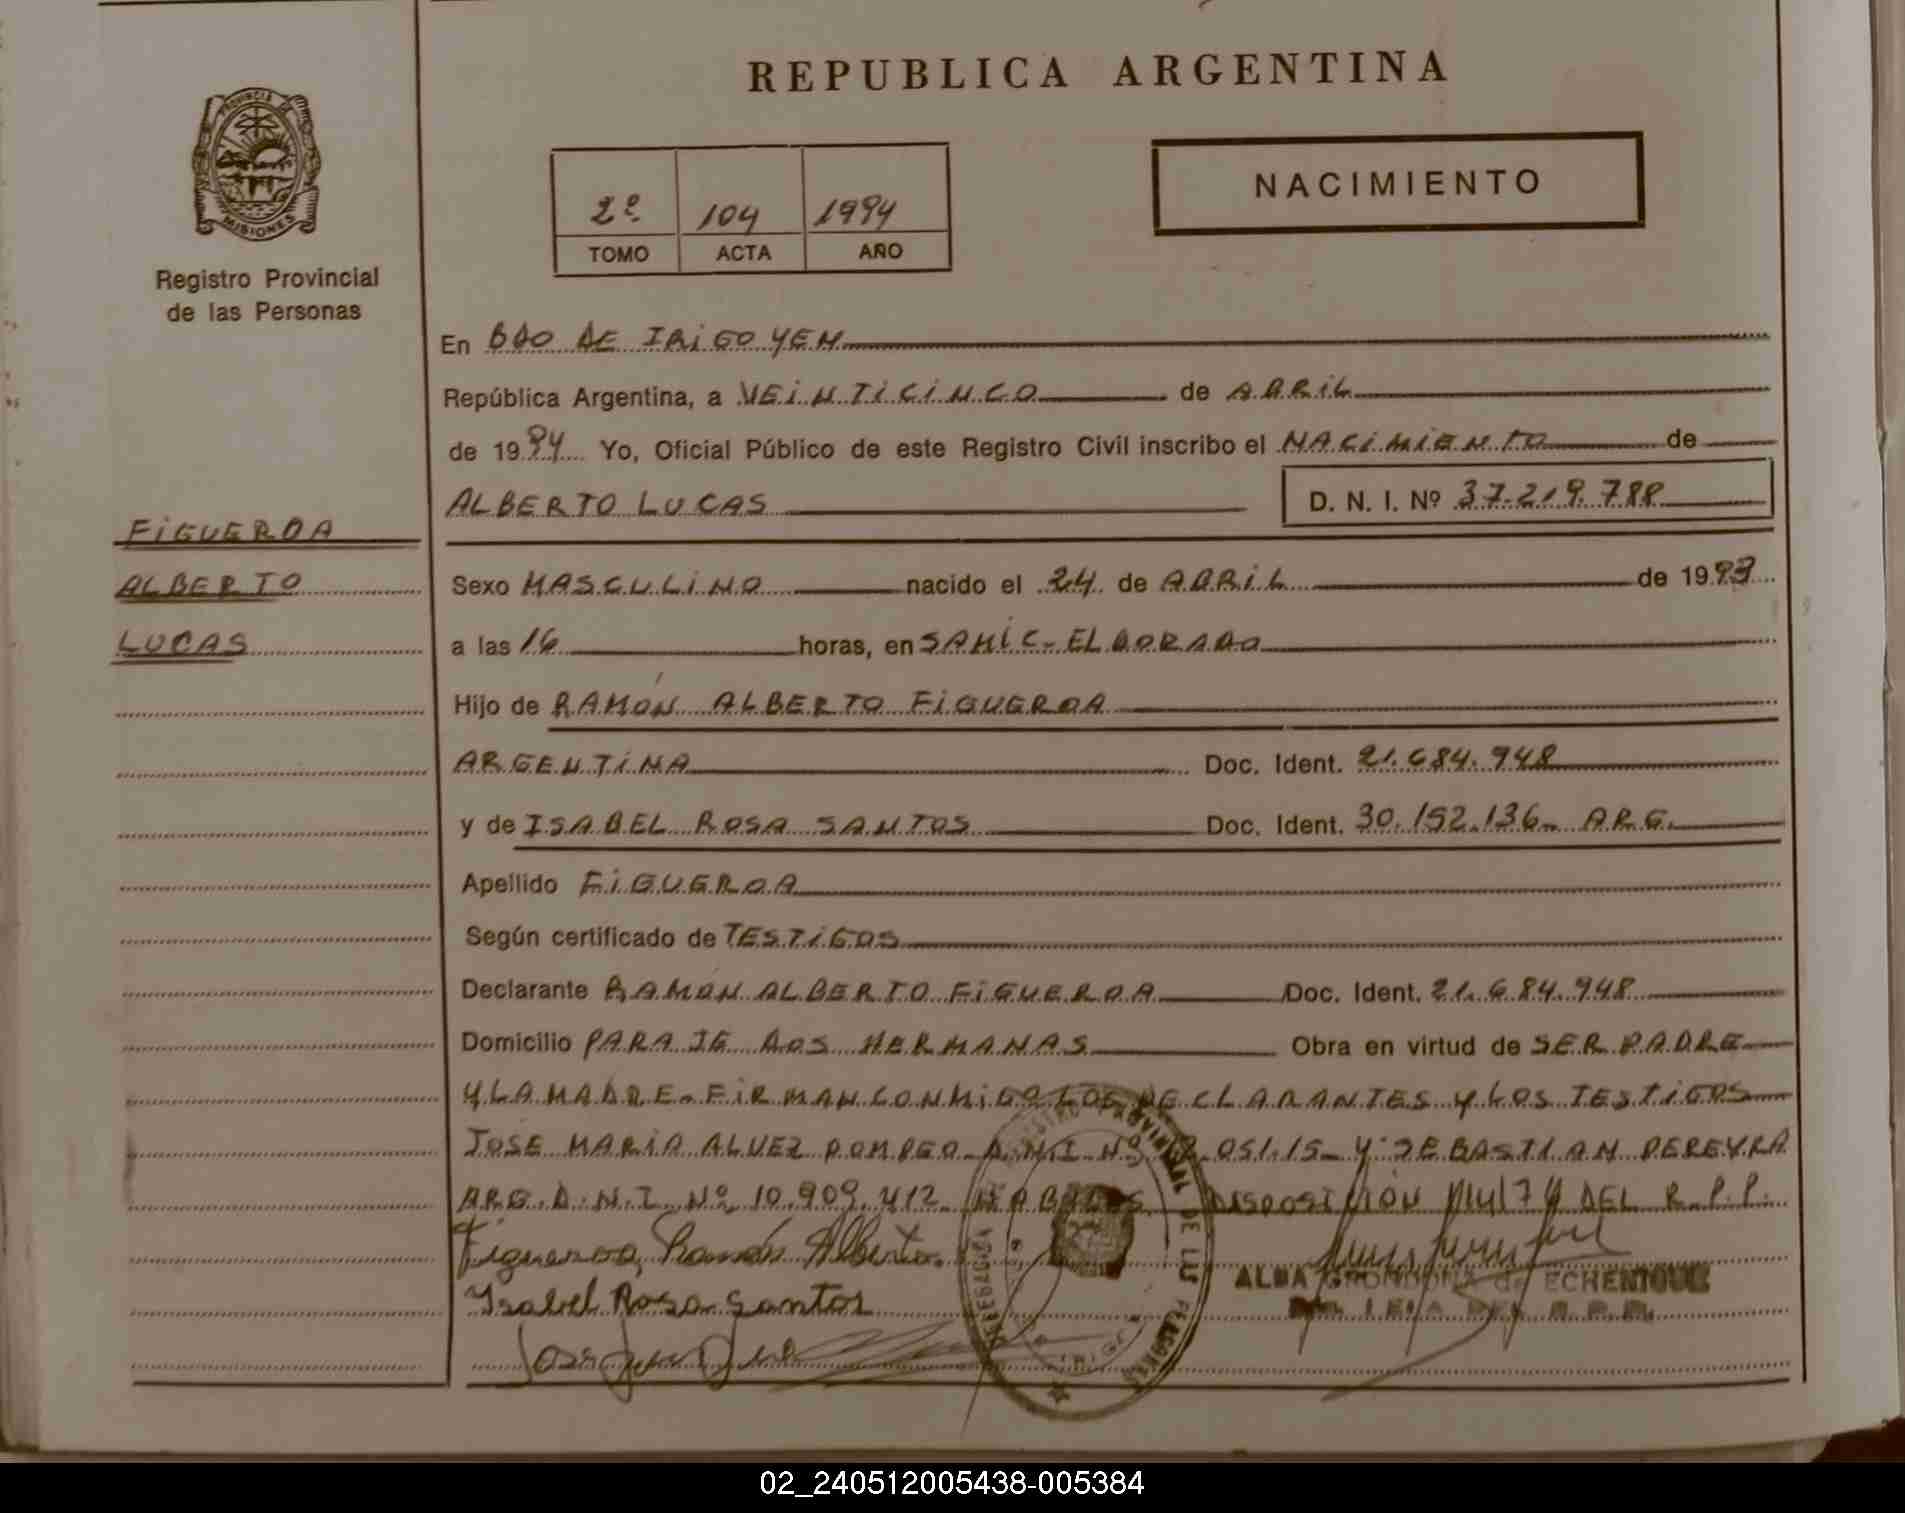 REPUBLICA ARGENTINA
PROVINCIA DE
MISIONES
Registro Provincial
de las Personas
2º 104 1994
TOMO ACTA AÑO
NACIMIENTO
En BDO DE IRIGOYEN
República Argentina, a VEINTICINCO de ABRIL
de 1994 Yo, Oficial Público de este Registro Civil inscribo el NACIMIENTO de
ALBERTO LUCAS D. N. I. Nº 37.219.788
FIGUEROA
ALBERTO
LUCAS
Sexo MASCULINO nacido el 24 de ABRIL de 1993
a las 16 horas, en SAMIC-ELDORADO
Hijo de RAMÓN ALBERTO FIGUEROA
ARGENTINA Doc. Ident. 21.684.948
y de ISABEL ROSA SANTOS Doc. Ident. 30.152.136- ARG.
Apellido FIGUEROA
Según certificado de TESTIGOS
Declarante RAMÓN ALBERTO FIGUEROA Doc. Ident. 21.684.948
Domicilio PARAJE DOS HERMANAS Obra en virtud de SER PADRE
Y LA MADRE-FIRMAN CONMIGO LOS DECLARANTES Y LOS TESTIGOS
JOSE MARÍA ALVEZ POMPEO D.N.I. Nº Y SEBASTIAN PEREYRA
ARG. D.N.I. Nº 10.909.412 DISPOSICIÓN DEL R.P.P.
Figueroa, Ramón Alberto.
Ysabel Rosa Santos
ALBA GRONDONA de ECHENIQUE
02_240512005438-005384